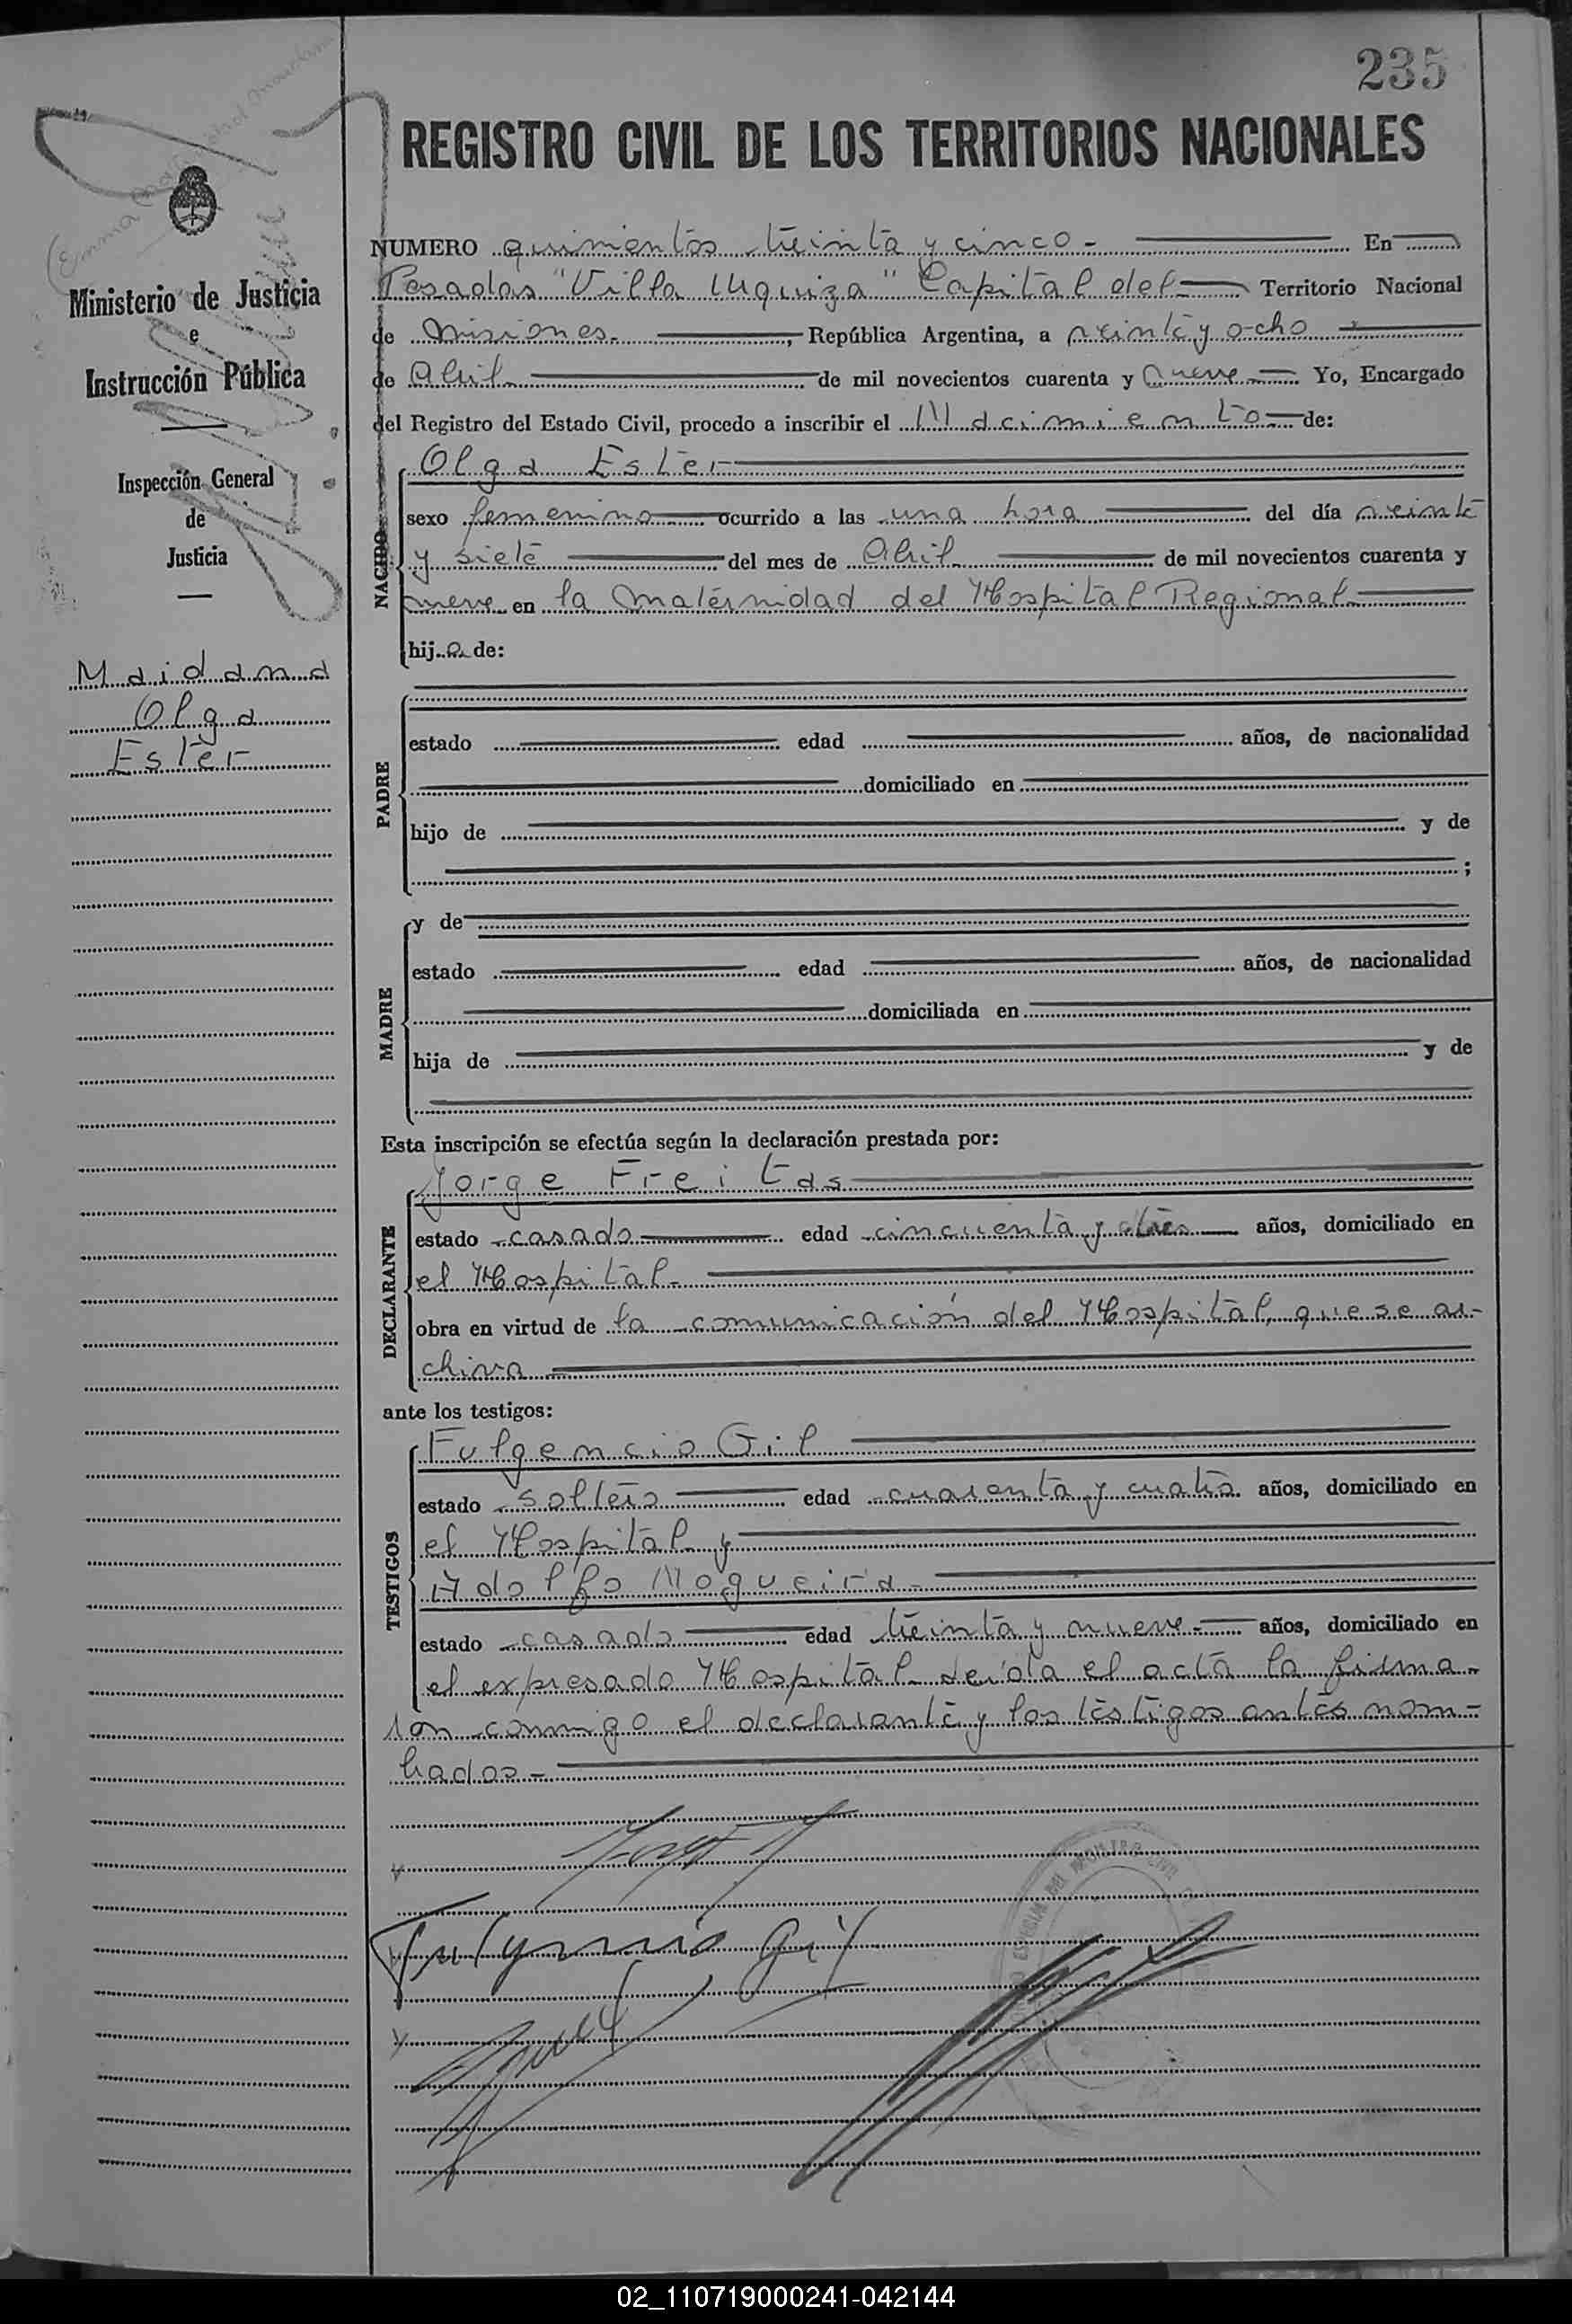 235
REGISTRO CIVIL DE LOS TERRITORIOS NACIONALES
Ministerio de Justicia
e
Instrucción Pública
Inspección General
de
Justicia
Maidana
Olga
Ester
NUMERO quinientos treinta y cinco - En
Posadas "Villa Urquiza" Capital del Territorio Nacional
de Misiones. , República Argentina, a veinte y ocho
de Abril de mil novecientos cuarenta y nueve Yo, Encargado
del Registro del Estado Civil, procedo a inscribir el Nacimiento de:
NACIDO
Olga Ester
sexo femenino ocurrido a las una hora del día veinte
y siete del mes de Abril de mil novecientos cuarenta y
nueve en la Maternidad del Hospital Regional
hija de:
PADRE
estado edad años, de nacionalidad
domiciliado en
hijo de y de
;
MADRE
y de
estado edad años, de nacionalidad
domiciliada en
hija de y de
Esta inscripción se efectúa según la declaración prestada por:
DECLARANTE
Jorge Freitas
estado casado edad cincuenta y años, domiciliado en
el Hospital-
obra en virtud de la comunicación del Hospital, que se ar-
chiva
ante los testigos:
TESTIGOS
Fulgencio Gil
estado soltero edad cuarenta y cuatro años, domiciliado en
el Hospital y
Adolfo Nogueira-
estado casado edad treinta y nueve - años, domiciliado en
el expresado Hospital-Leída el acta la firma-
ron conmigo el declarante y los testigos antes nom-
brados-
Fulgencio Gil
02_110719000241-042144